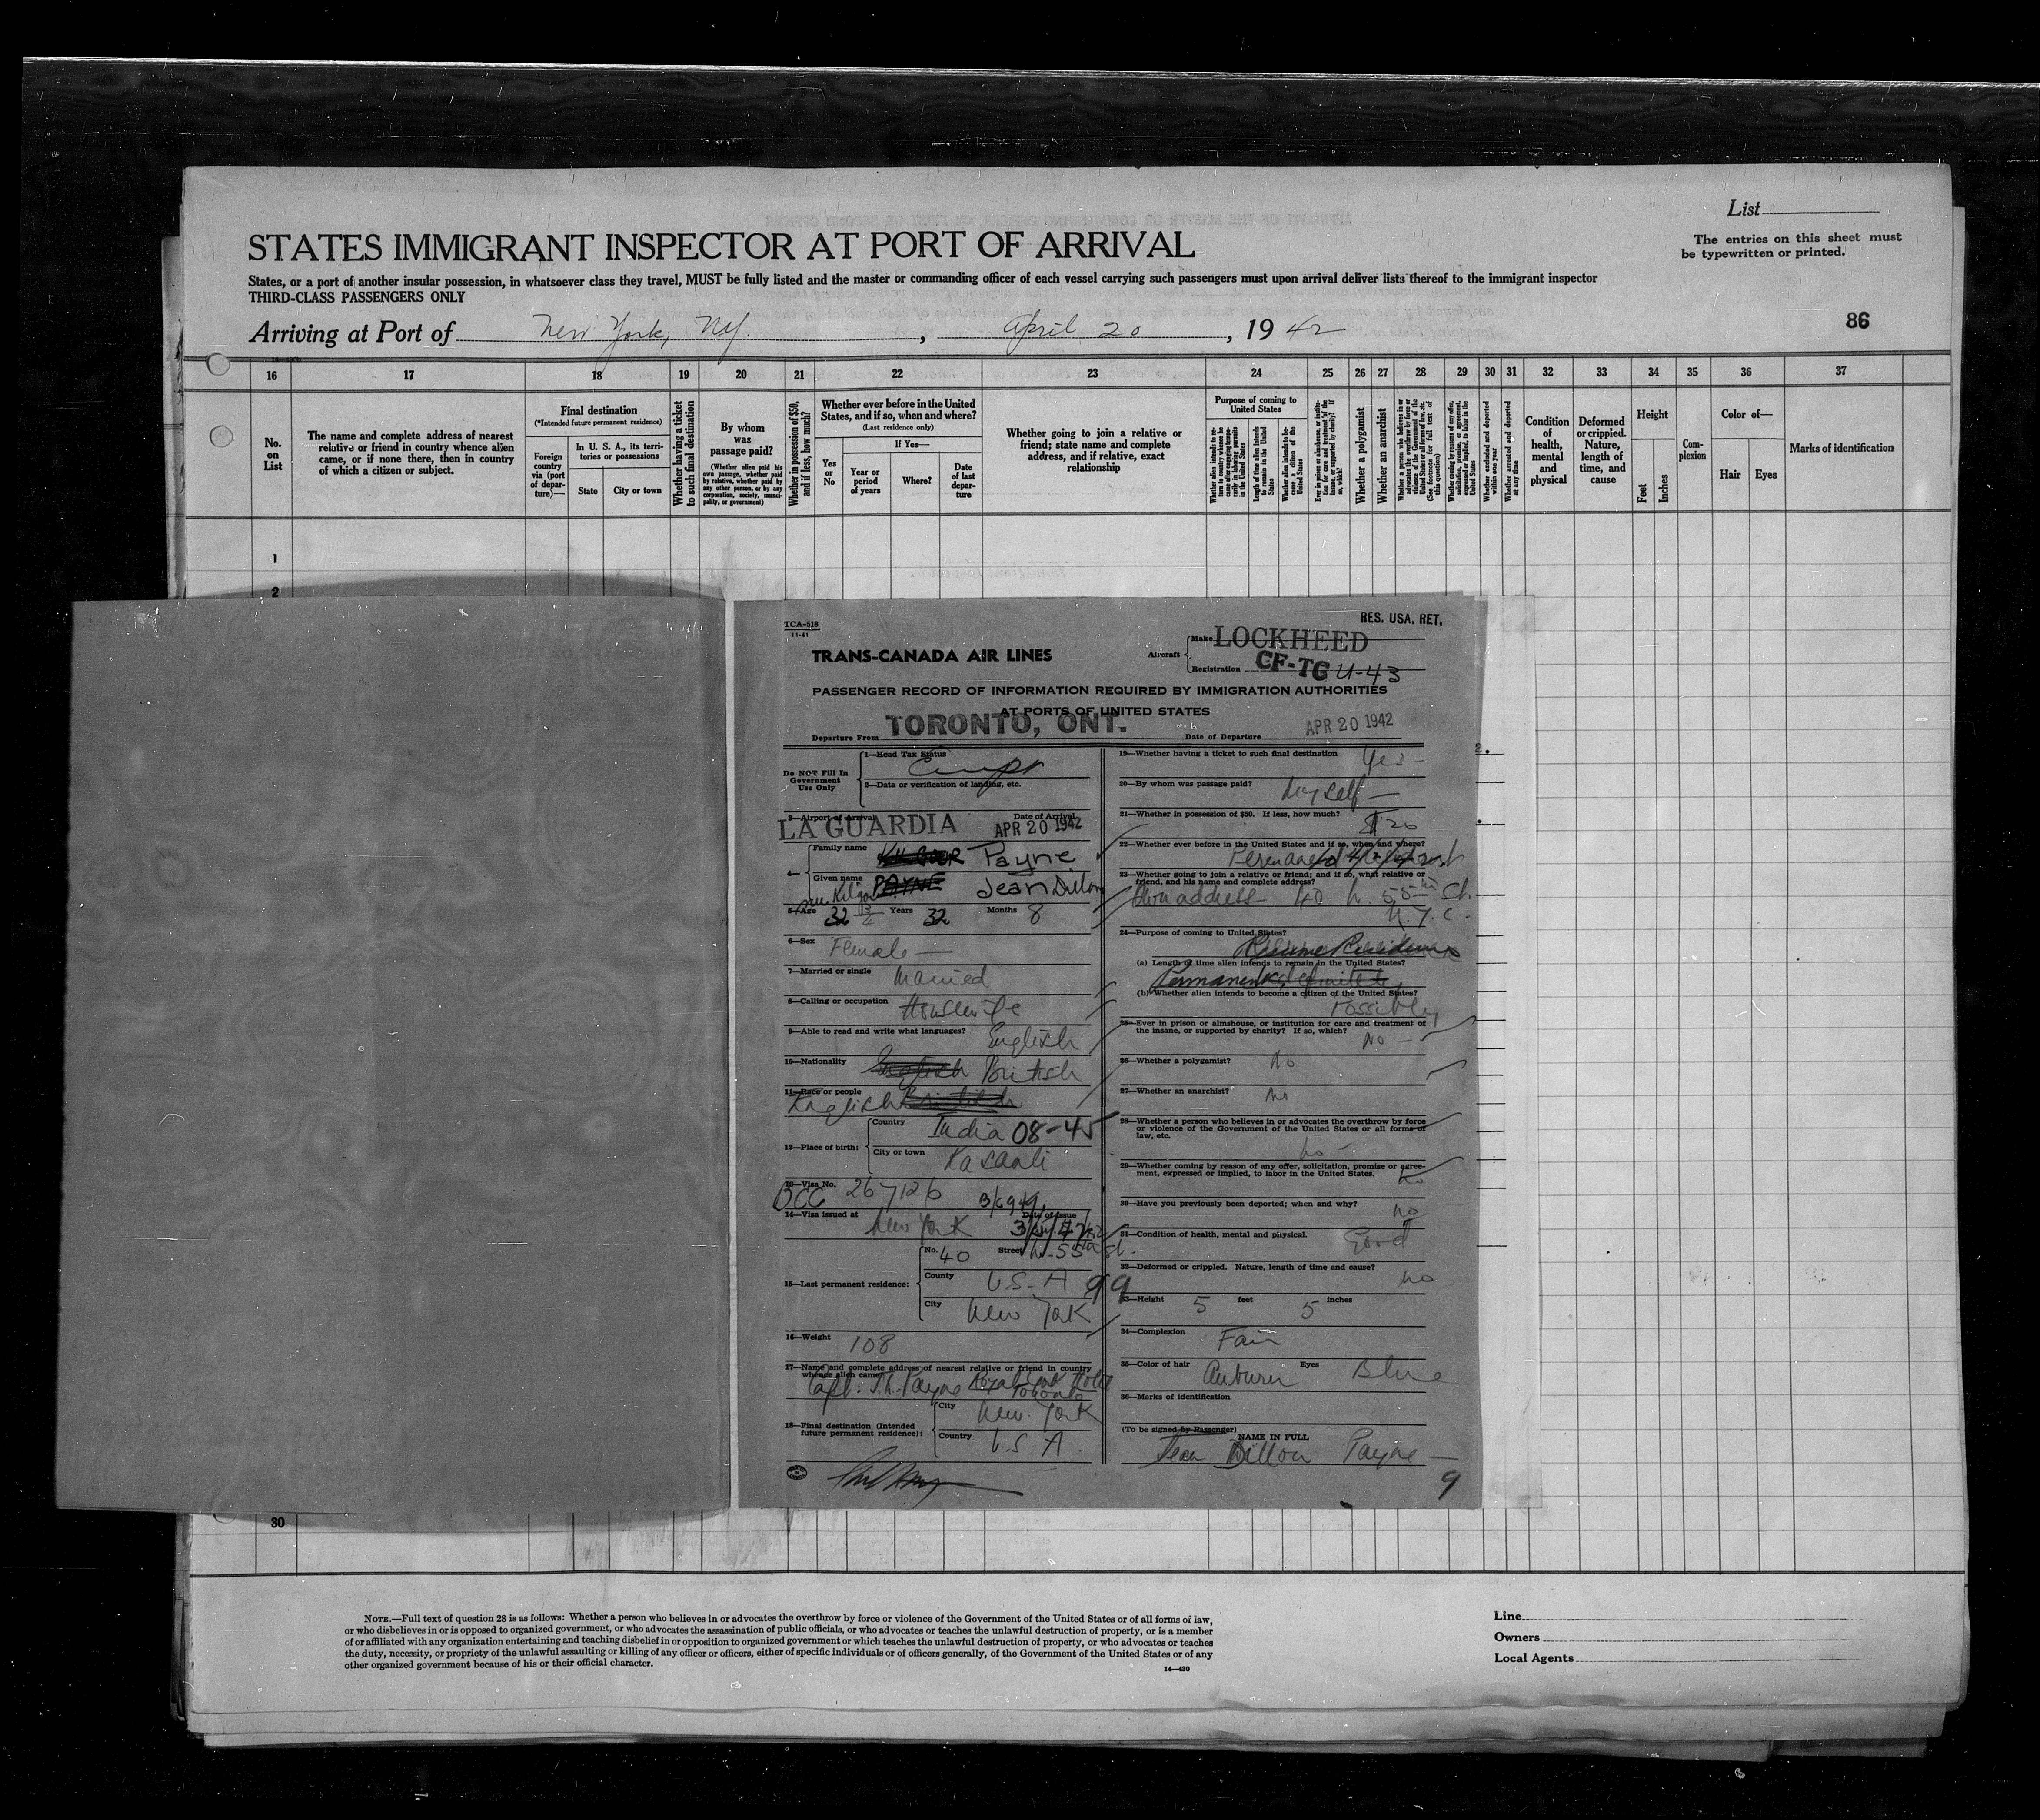 List
STATES IMMIGRANT INSPECTOR AT PORT OF ARRIVAL
The entries on this sheet must
be typewritten or printed.
States, or a port of another insular possession, in whatsoever class they travel, MUST be fully listed and the master or commanding officer of each vessel carrying such passengers must upon arrival deliver lists thereof to the immigrant inspector
THIRD-CLASS PASSENGERS ONLY
Arriving at Port of New York, NY. , April 20 , 19 42
86
16 17 18 19 20 21 22 23 24 25 26 27 28 29 30 31 32 33 34 35 36 37
No.
on
List
The name and complete address of nearest
relative or friend in country whence alien
came, or if none there, then in country
of which a citizen or subject.
Final destination
(*Intended future permanent residence)
Foreign
country
via (port
of depar-
ture)—
In U. S. A., its terri-
tories or possessions
State City or town
Whether having a ticket
to such final destination
By whom
was
passage paid?
(Whether alien paid his
own passage, whether paid
by relative, whether paid by
any other person, or by any
corporation, society, munici-
pality, or government)
Whether in possession of $50,
and if less, how much?
Whether ever before in the United
States, and if so, when and where?
(Last residence only)
If Yes—
Yes
or
No
Year or
period
of years
Where?
Date
of last
depar-
ture
Whether going to join a relative or
friend; state name and complete
address, and if relative, exact
relationship
Purpose of coming to
United States
Length of time alien intends
to remain in the United
States
Whether alien intends to be-
come a citizen of the
United States
Whether a polygamist
Whether an anarchist
Whether excluded and deported
within one year
Whether arrested and deported
at any time
Condition
of
health,
mental
and
physical
Deformed
or crippled.
Nature,
length of
time, and
cause
Height
Feet
Inches
Com-
plexion
Color of—
Hair Eyes
Marks of identification
1
2
TCA-518
11-41
RES. USA. RET.
TRANS-CANADA AIR LINES
Aircraft
Make LOCKHEED
Registration CF-TG U-43
PASSENGER RECORD OF INFORMATION REQUIRED BY IMMIGRATION AUTHORITIES
AT PORTS OF UNITED STATES
Departure From TORONTO, ONT.
Date of Departure APR 20 1942
Do NOT Fill In
Government
Use Only
1—Head Tax Status
2—Data or verification of landing, etc.
3—Airport of arrival Date of Arrival
LA GUARDIA APR 20 1942
4— Family name Payne
Given name PAYNE Jean Dillon
5—Age 32 Years 32 Months 8
6—Sex Female —
7—Married or single Married
8—Calling or occupation Housewife
9—Able to read and write what languages? English
10—Nationality English British
11—Race or people
English British
12—Place of birth: Country India 08-45
City or town Kasauli
13—Visa No. 267126
14—Visa issued at New York Date of Issue
15—Last permanent residence: No. 40 Street W-55th St.
County U.S.A 99
City New York
16—Weight 108
17—Name and complete address of nearest relative or friend in country
whence alien came
Capt: Payne Royal York Hotel
Toronto
18—Final destination (Intended
future permanent residence): City New York
Country U.S A.
19—Whether having a ticket to such final destination Yes —
20—By whom was passage paid? Myself —
21—Whether in possession of $50. If less, how much? 20
22—Whether ever before in the United States and if so, when and where?
23—Whether going to join a relative or friend; and if so, what relative or
friend, and his name and complete address?
Own address — 40 W. 55th St.
N.Y.C.
24—Purpose of coming to United States? Resume Residence
(a) Length of time alien intends to remain in the United States?
Permanent
(b) Whether alien intends to become a citizen of the United States?
Possibly
25—Ever in prison or almshouse, or institution for care and treatment of
the insane, or supported by charity? If so, which?
No —
26—Whether a polygamist? No
27—Whether an anarchist? No
28—Whether a person who believes in or advocates the overthrow by force
or violence of the Government of the United States or all forms of
law, etc.
No —
29—Whether coming by reason of any offer, solicitation, promise or agree-
ment, expressed or implied, to labor in the United States. No
30—Have you previously been deported; when and why? no
31—Condition of health, mental and physical. Good
32—Deformed or crippled. Nature, length of time and cause? No
33—Height 5 feet 5 inches
34—Complexion Fair
35—Color of hair Auburn Eyes Blue
36—Marks of identification
(To be signed by Passenger) NAME IN FULL
Jean Dillon Payne —
9
30
NOTE.—Full text of question 28 is as follows: Whether a person who believes in or advocates the overthrow by force or violence of the Government of the United States or of all forms of law,
or who disbelieves in or is opposed to organized government, or who advocates the assassination of public officials, or who advocates or teaches the unlawful destruction of property, or is a member
of or affiliated with any organization entertaining and teaching disbelief in or opposition to organized government or which teaches the unlawful destruction of property, or who advocates or teaches
the duty, necessity, or propriety of the unlawful assaulting or killing of any officer or officers, either of specific individuals or of officers generally, of the Government of the United States or of any
other organized government because of his or their official character.
14—430
Line
Owners
Local Agents